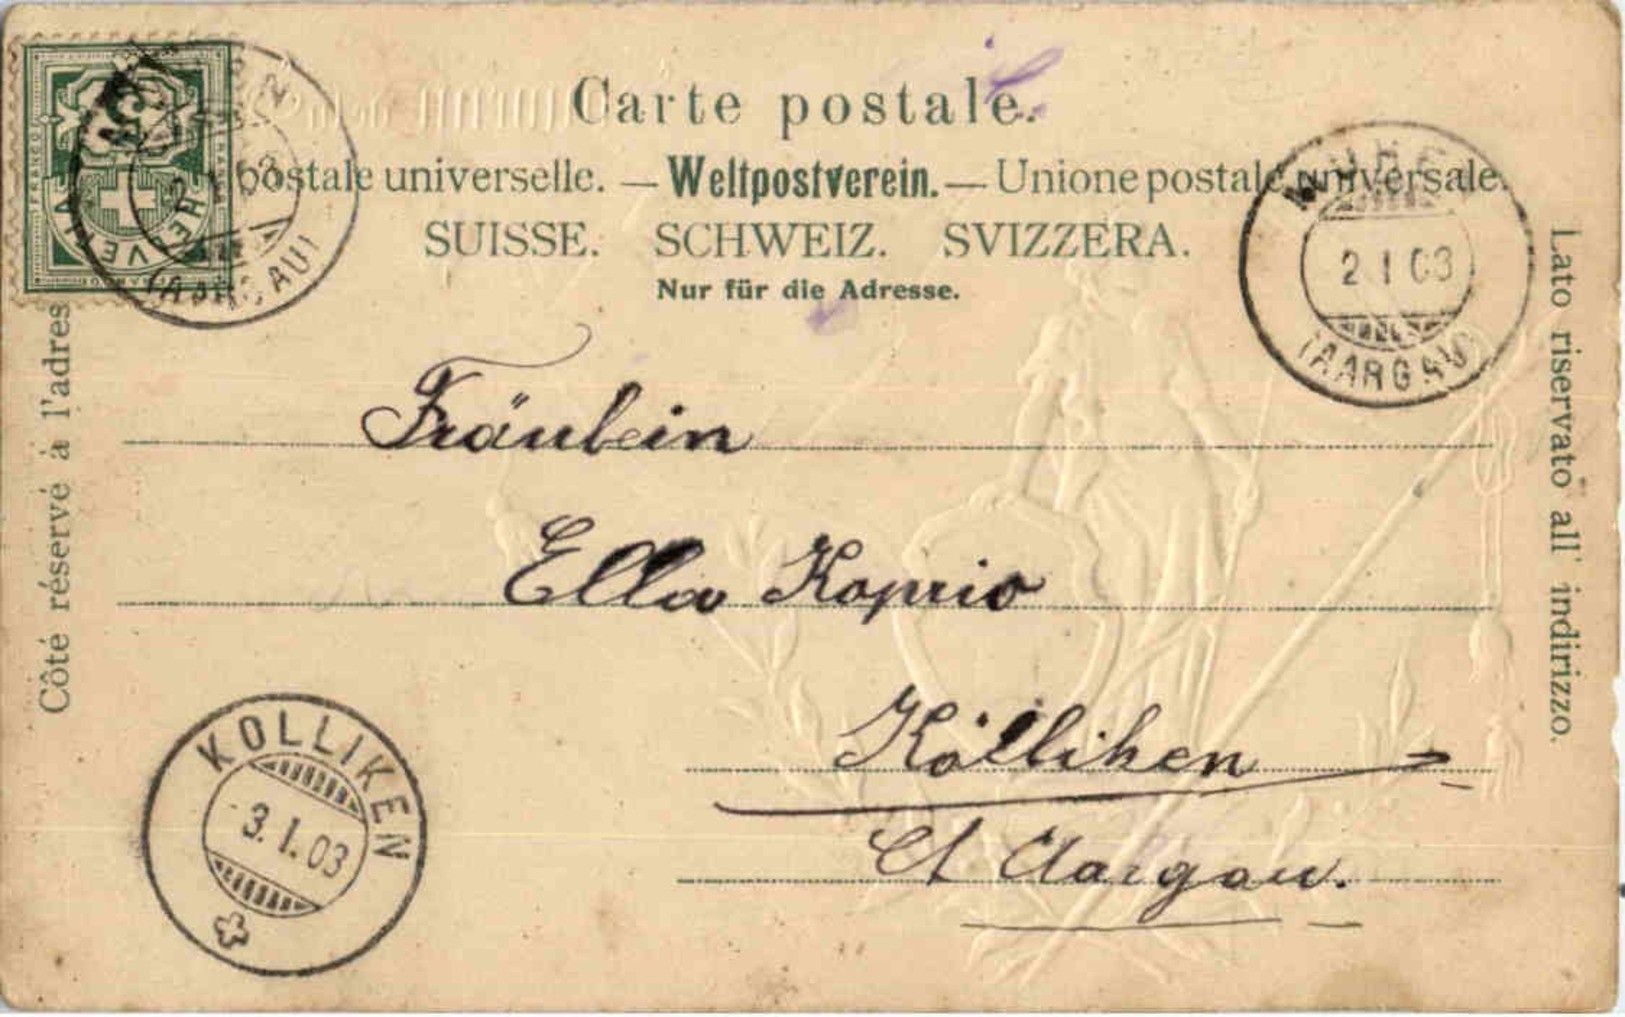 Carte postale.
postale universelle. — Weltpostverein. — Unione postale universale.
SUISSE. SCHWEIZ. SVIZZERA.
Nur für die Adresse.
Côté réservé à l'adres
Lato riservato all' indirizzo.
FRANCO
HELVETIA
(AARGAU)
MUHEN
2 I 03
(AARGAU)
Fräulein
Ella Koprio
Kölliken
Ct Aargau.
KOLLIKEN
3. I. 03